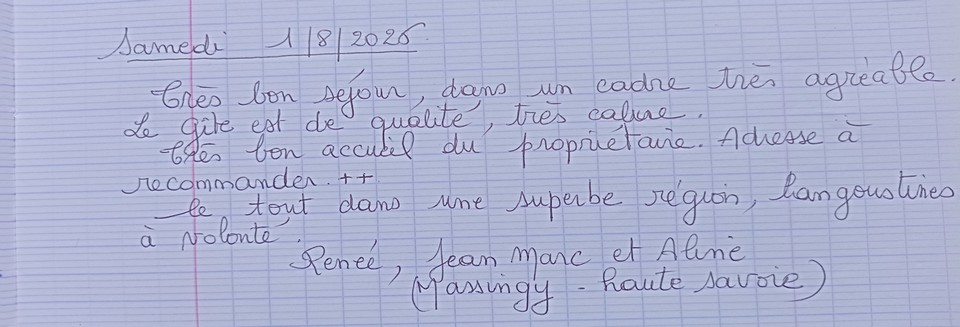 Samedi 1/8/2026.
Très bon séjour, dans un cadre très agréable.
Le gîte est de qualité, très calme.
Très bon accueil du propriétaire. Adresse à
recommander. ++
le tout dans une superbe région, langoustines
à volonté.
Renée, Jean Marc et Aline
(Massingy - haute savoie)